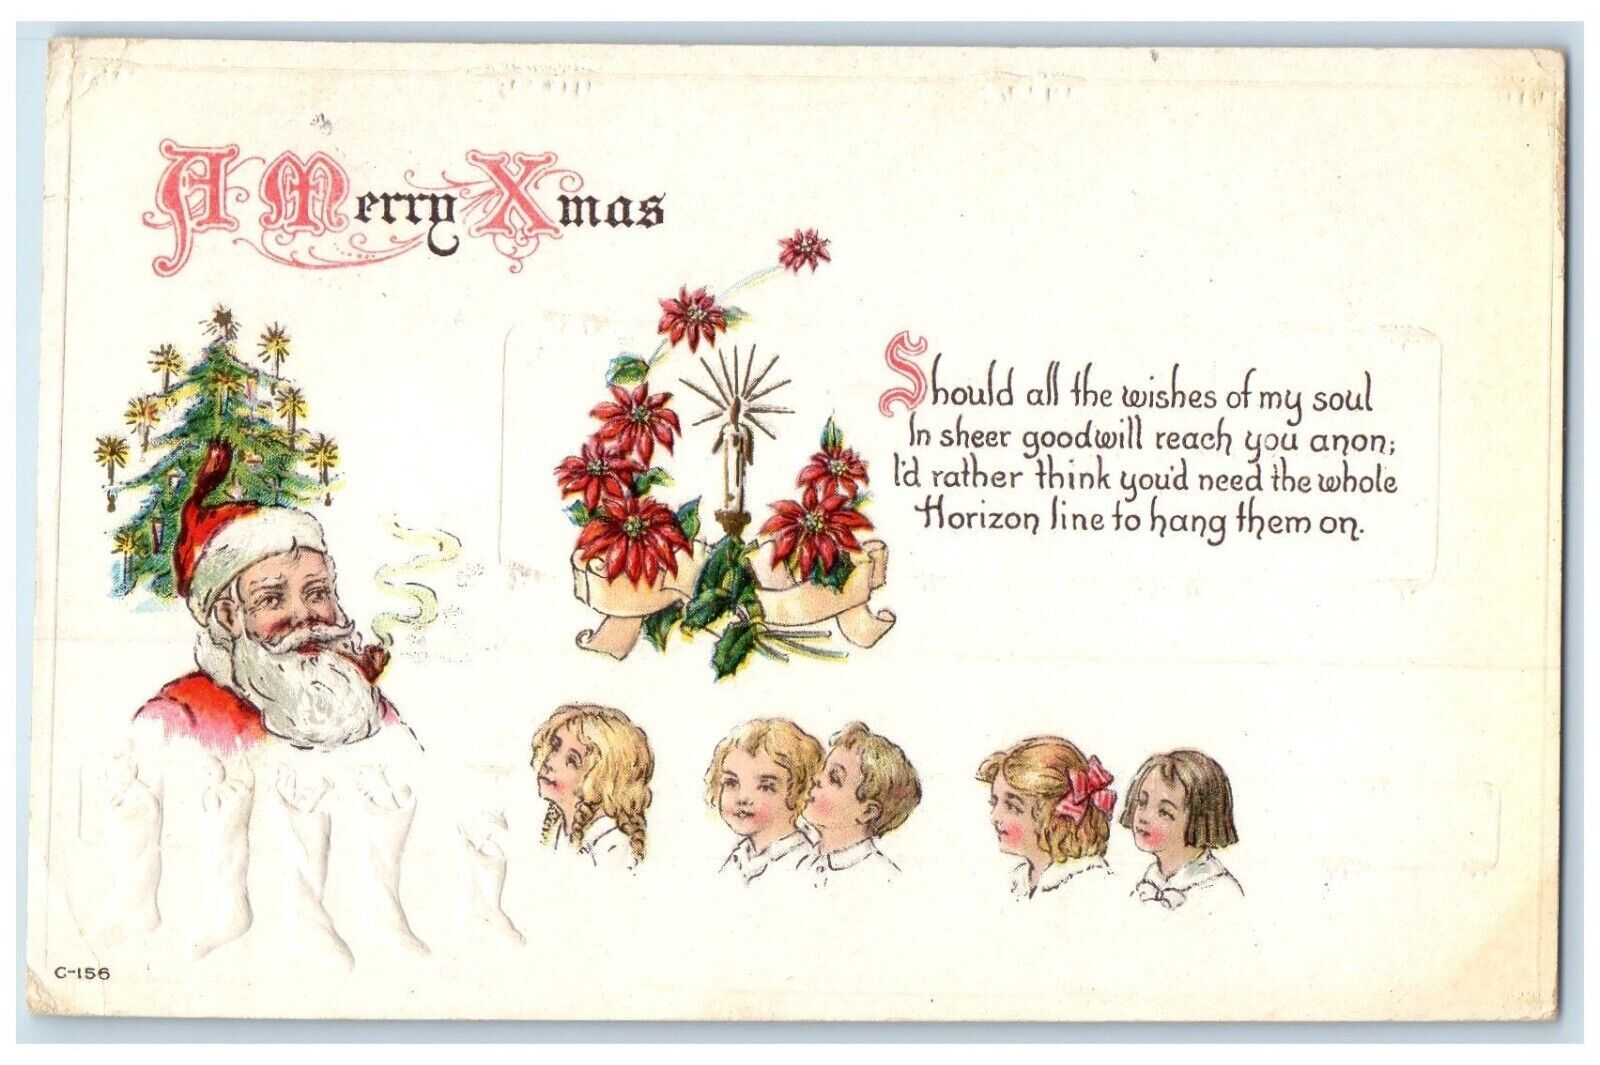 A Merry Xmas
Should all the wishes of my soul
In sheer goodwill reach you anon;
I'd rather think you'd need the whole
Horizon line to hang them on.
C-156